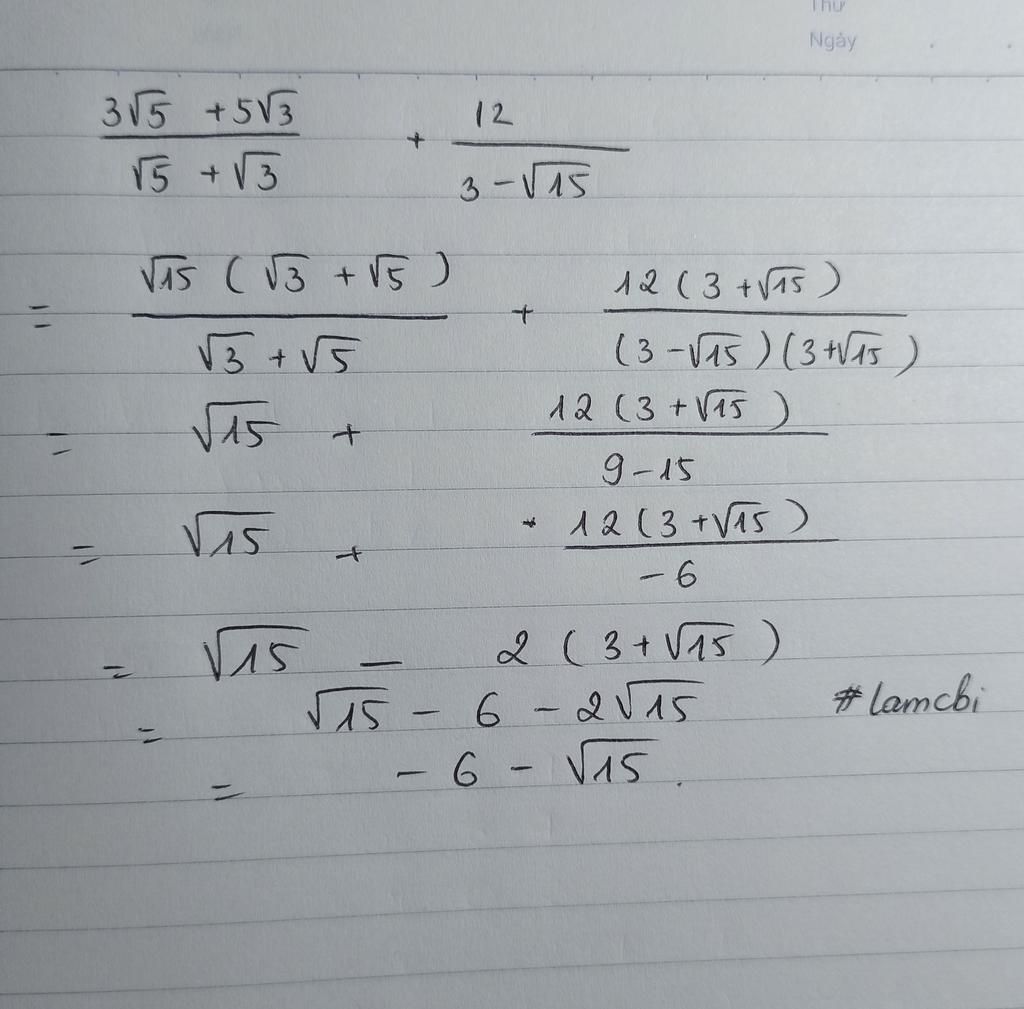 Thứ
Ngày
(3√5 + 5√3)/(√5 + √3) + 12/(3 - √15)
= √15 (√3 + √5)/(√3 + √5) + 12(3 + √15)/((3 - √15)(3 + √15))
= √15 + 12(3 + √15)/(9 - 15)
= √15 + 12(3 + √15)/(-6)
= √15 - 2(3 + √15)
= √15 - 6 - 2√15
#lamcbi
= - 6 - √15.